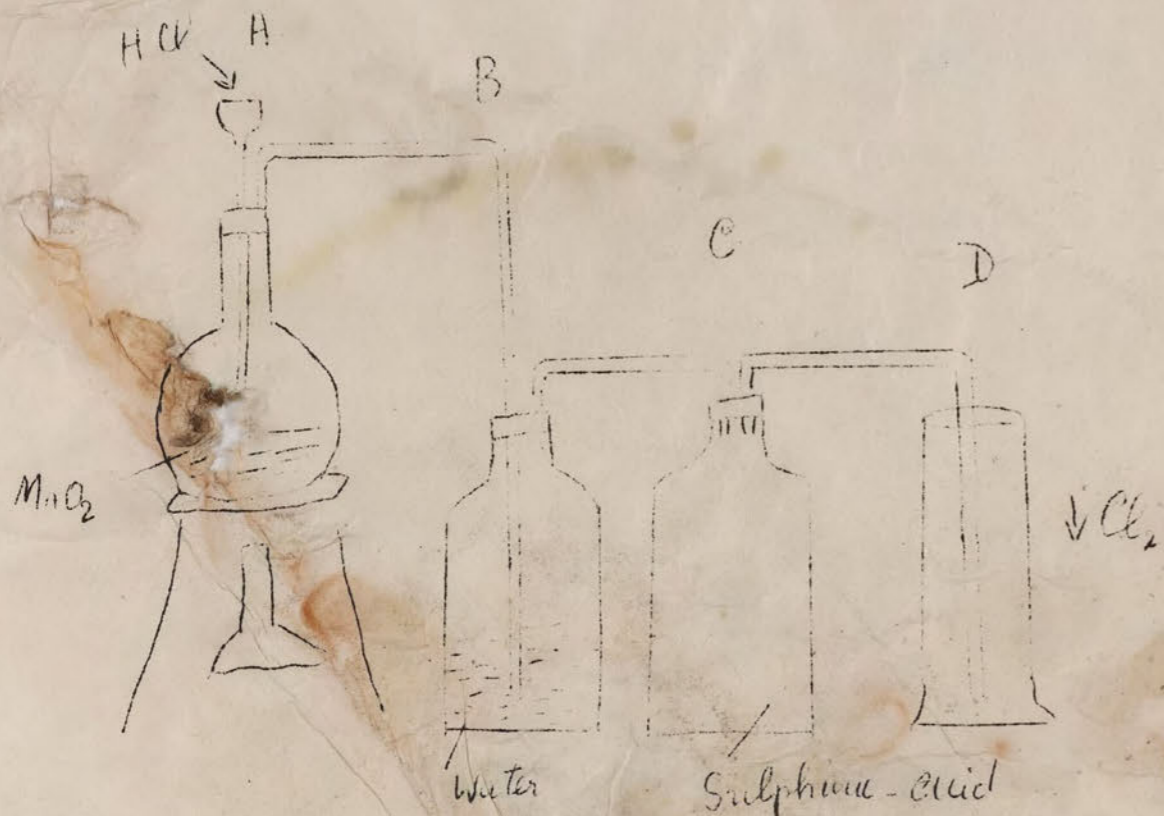 HCl A
B
C
D
MnO2
Cl2
Water
Sulphuric - acid